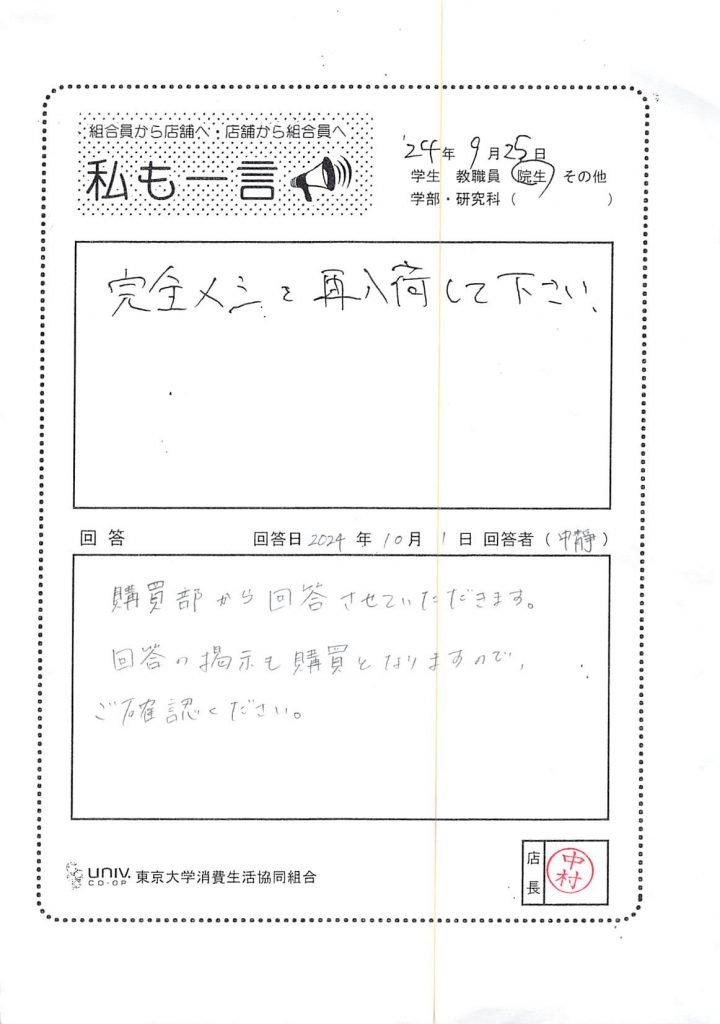 組合員から店舗へ・店舗から組合員へ
私も一言
'24年 9月25日
学生 教職員 院生 その他
学部・研究科( )
完全メシを再入荷して下さい、
回答 回答日 2024 年 10 月 1 日 回答者(中静)
購買部から回答させていただきます。
回答の掲示も購買となりますので、
ご確認ください。
UNIV. CO-OP 東京大学消費生活協同組合
店長 中村